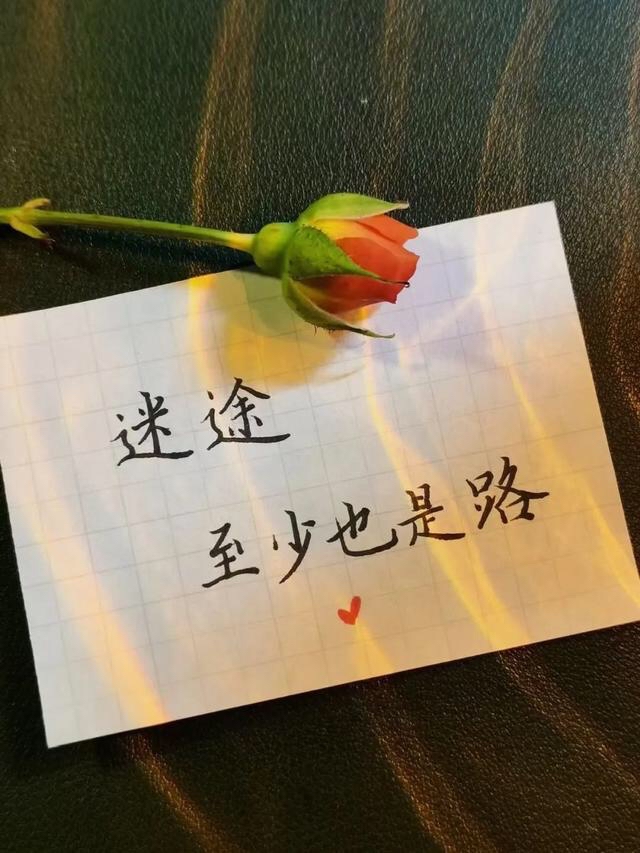 迷途
至少也是路